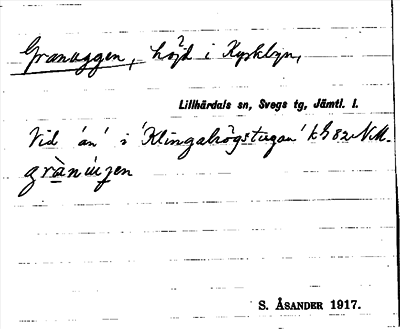 Granuggen, höjd i Kyrkbyn,
Lillhärdals sn, Svegs tg, Jämtl. l.
Vid 'än' i 'Klingalhögstugan' k. G 82 N.M.
S. ÅSANDER 1917.